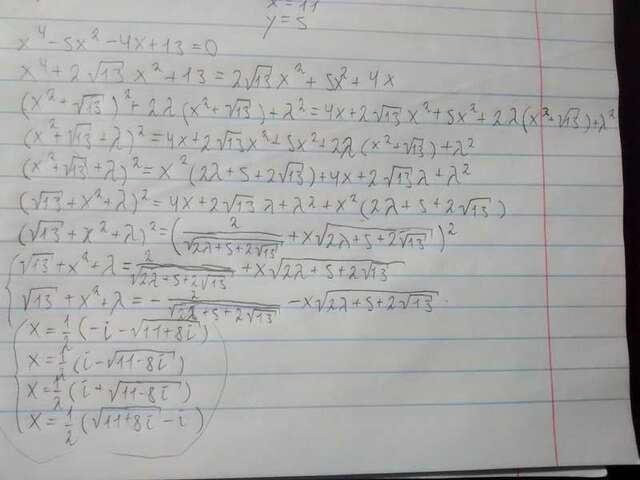 x = 11
y = 5
x⁴ - 5x² - 4x + 13 = 0
x⁴ + 2√13 x² + 13 = 2√13 x² + 5x² + 4x
(x² + √13)² + 2λ(x² + √13) + λ² = 4x + 2√13 x² + 5x² + 2λ(x² + √13) + λ²
(x² + √13 + λ)² = 4x + 2√13 x² + 5x² + 2λ(x² + √13) + λ²
(x² + √13 + λ)² = x²(2λ + 5 + 2√13) + 4x + 2√13 λ + λ²
(√13 + x² + λ)² = 4x + 2√13 λ + λ² + x²(2λ + 5 + 2√13)
(√13 + x² + λ)² = (2/√(2λ + 5 + 2√13) + x√(2λ + 5 + 2√13))²
√13 + x² + λ = 2/√(2λ + 5 + 2√13) + x√(2λ + 5 + 2√13)
√13 + x² + λ = - 2/√(2λ + 5 + 2√13) - x√(2λ + 5 + 2√13)
x = 1/2 (-i - √(11 + 8i))
x = 1/2 (i - √(11 - 8i))
x = 1/2 (i + √(11 - 8i))
x = 1/2 (√(11 + 8i) - i)